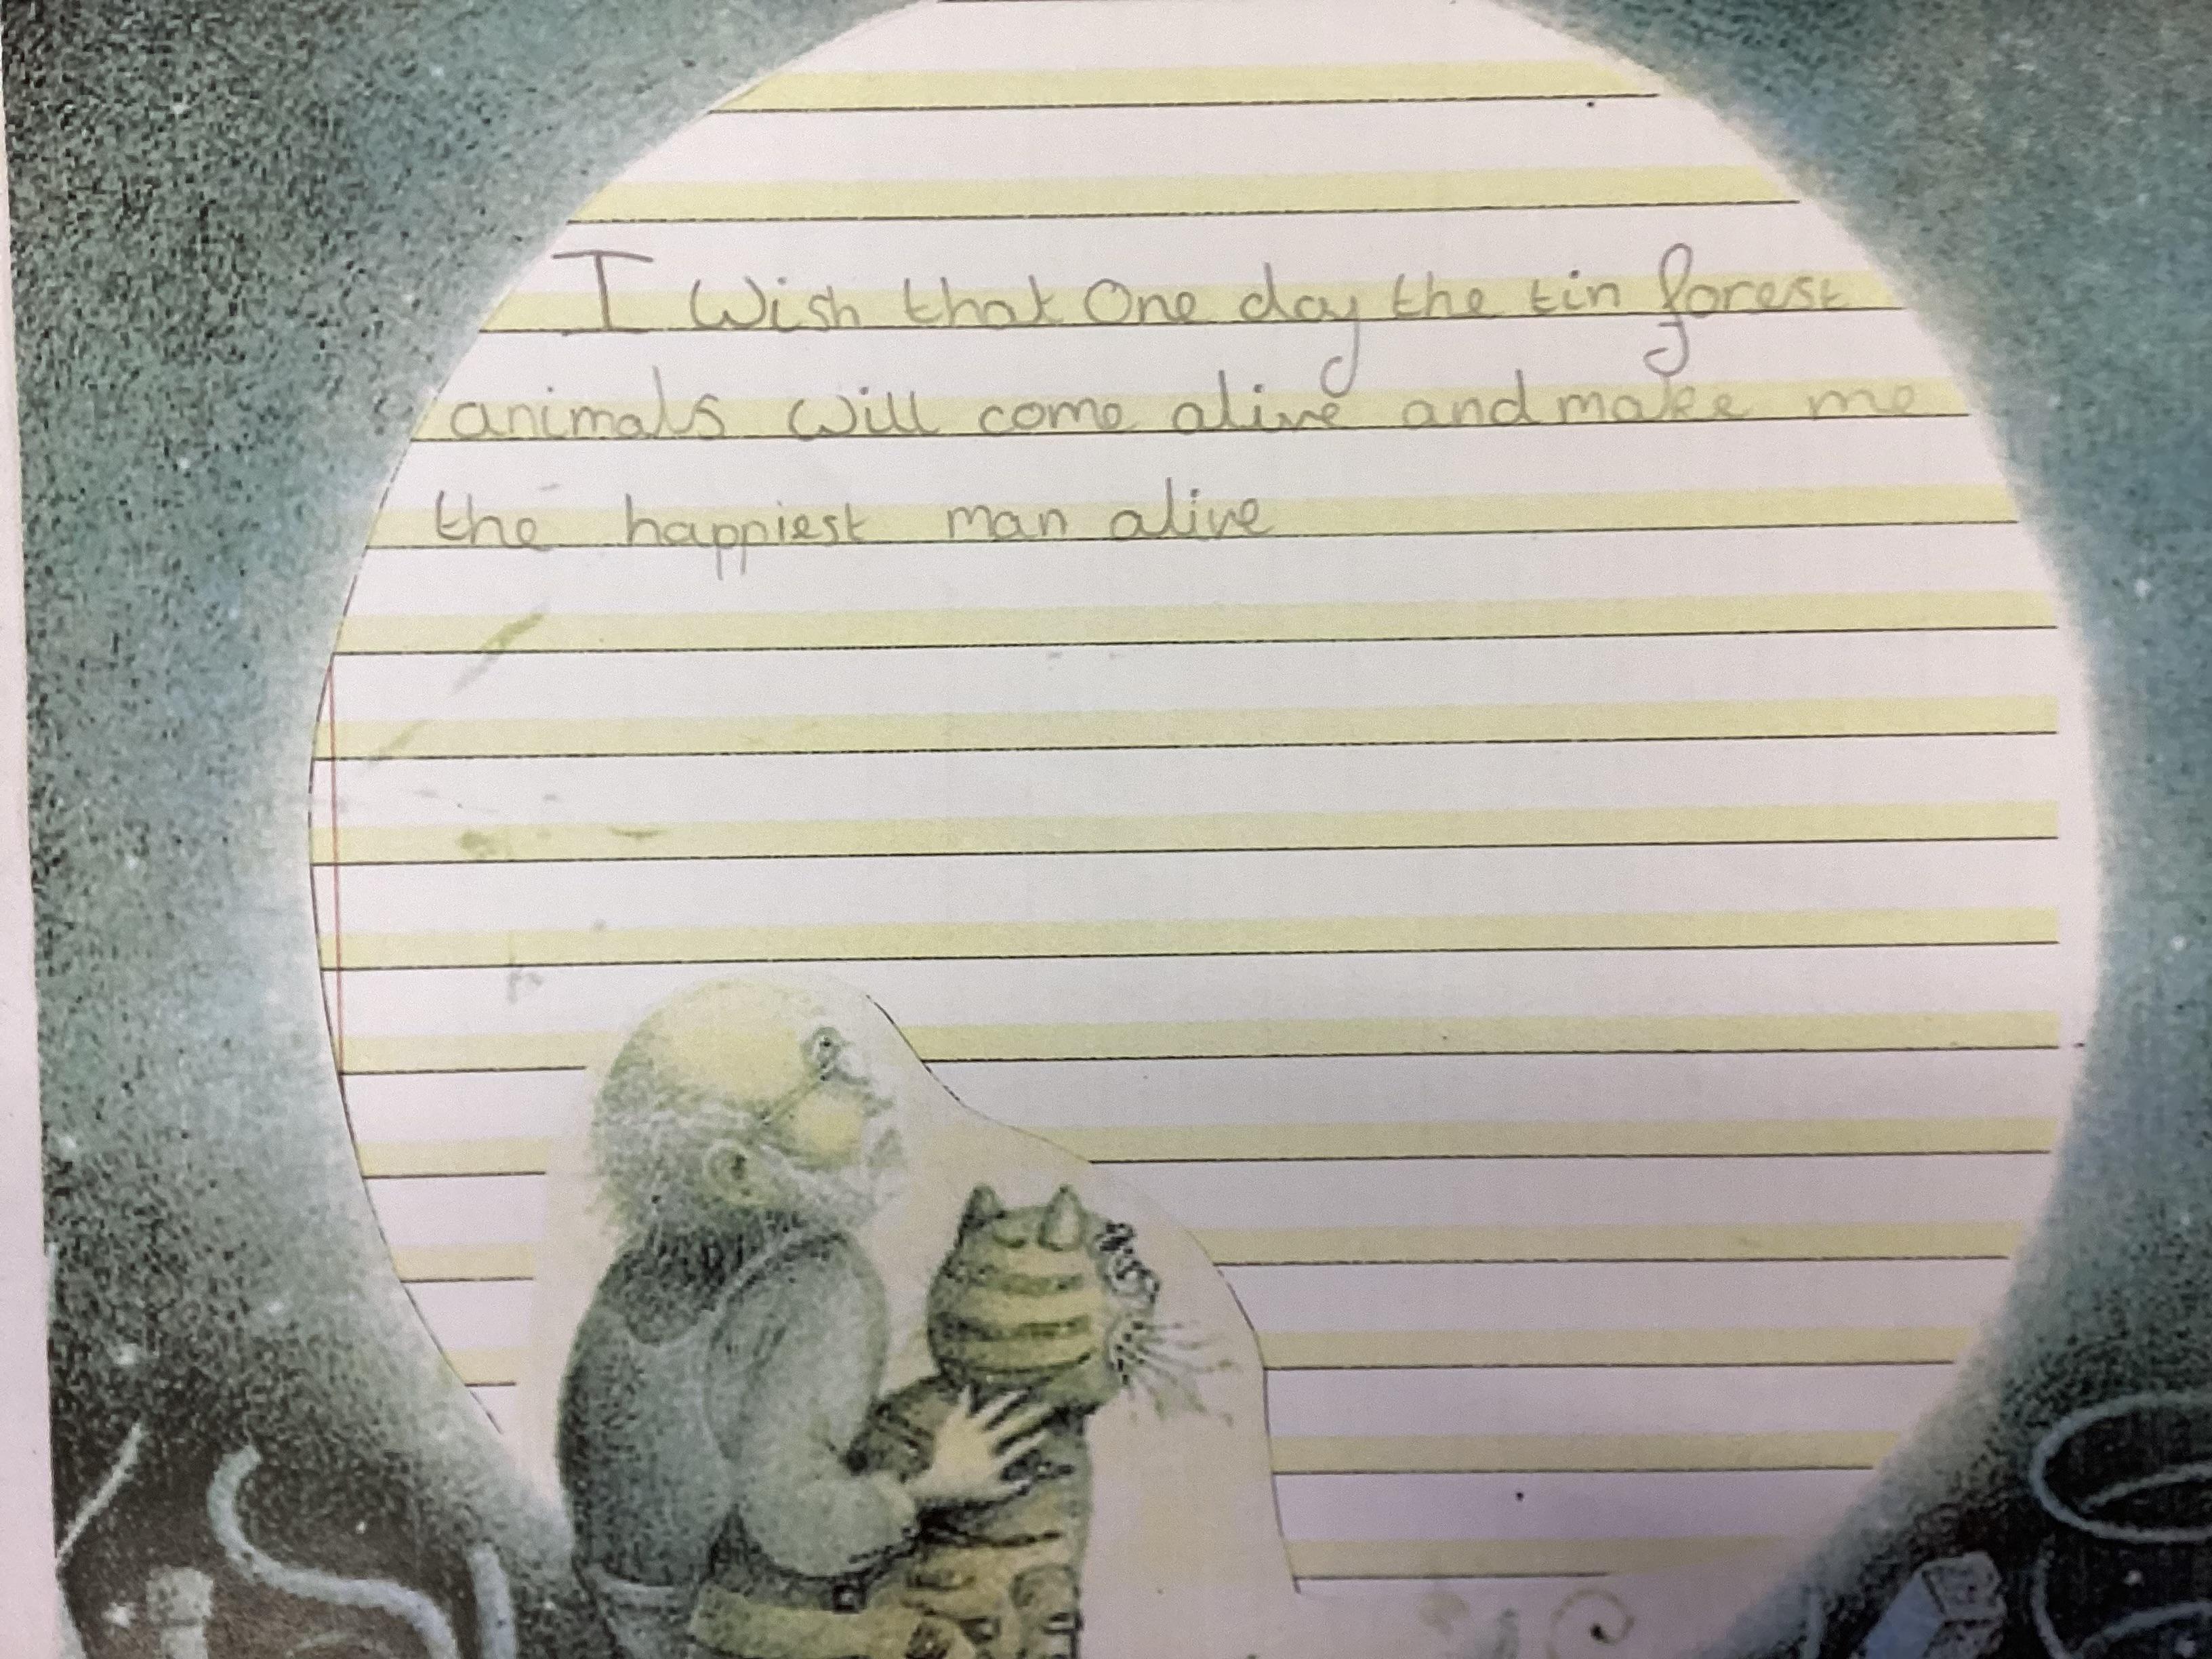 I Wish that One day the tin forest
animals will come alive and make me
the happiest man alive